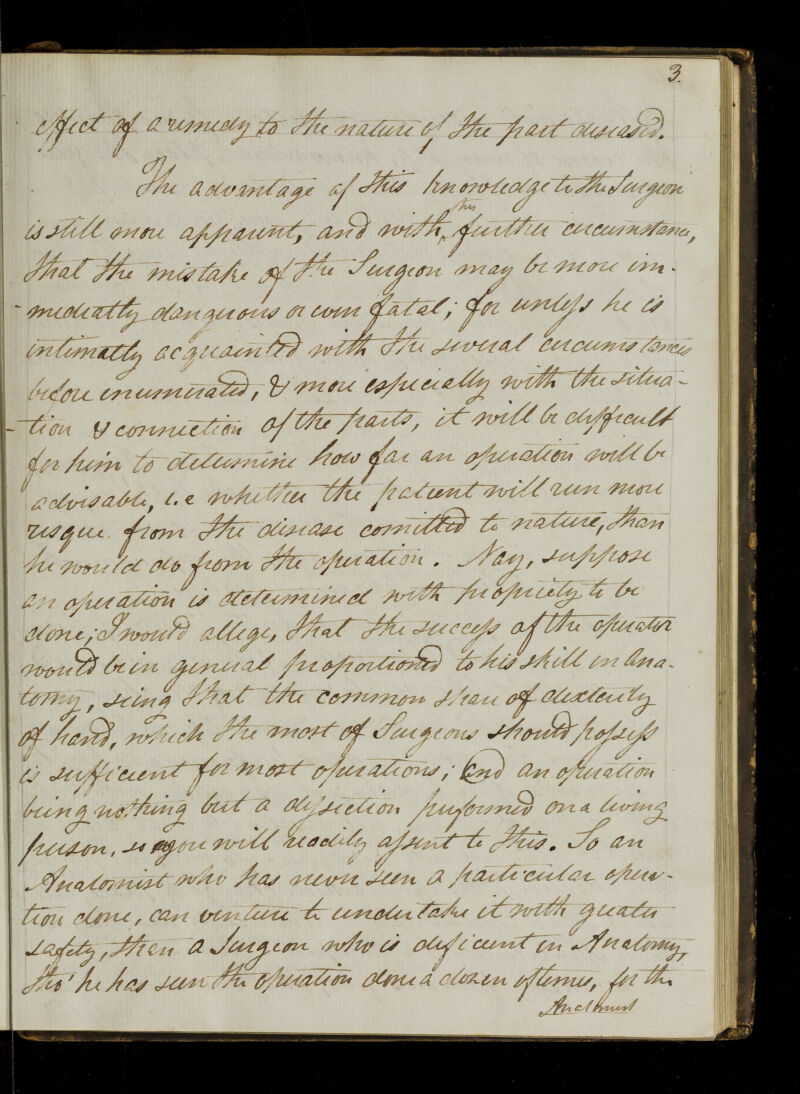 3.
effect of a remedy to the nature of the part diseased.
The advantage of this knowledge to the Surgeon
is still more apparent, and with this further circumstance,
that the mistake of the Surgeon may be more im-
mediatly dangerous or even fatal; for unless he is
intimatly acquainted with the several circumstances
before enumerated, & more especially with the situa-
tion & connection of the parts, it will be difficult
for him to determine how far an operation will be
advisable, i.e whether the patient will run more
risque from the disease comitted to nature, than
he would do from the operation. Nay, suppose
an operation is determined with propriety to be
done; I would allege, that the success of the operator
would be in general proportioned to his skill in Ana-
tomy, seing that the common share of dexterity
of hand, which the most of Surgeons should possess
is sufficient for most operations; And an operation
being nothing but a dissection performed on a living
person, so you will readily assent to this. So an
Anatomist who has never seen a particular opera-
tion done, can venture to undertake it with greater
safety, then a Surgeon who is deficient in Anatomy,
tho' he has seen the operation done a dozen of times, for the
Anatomist